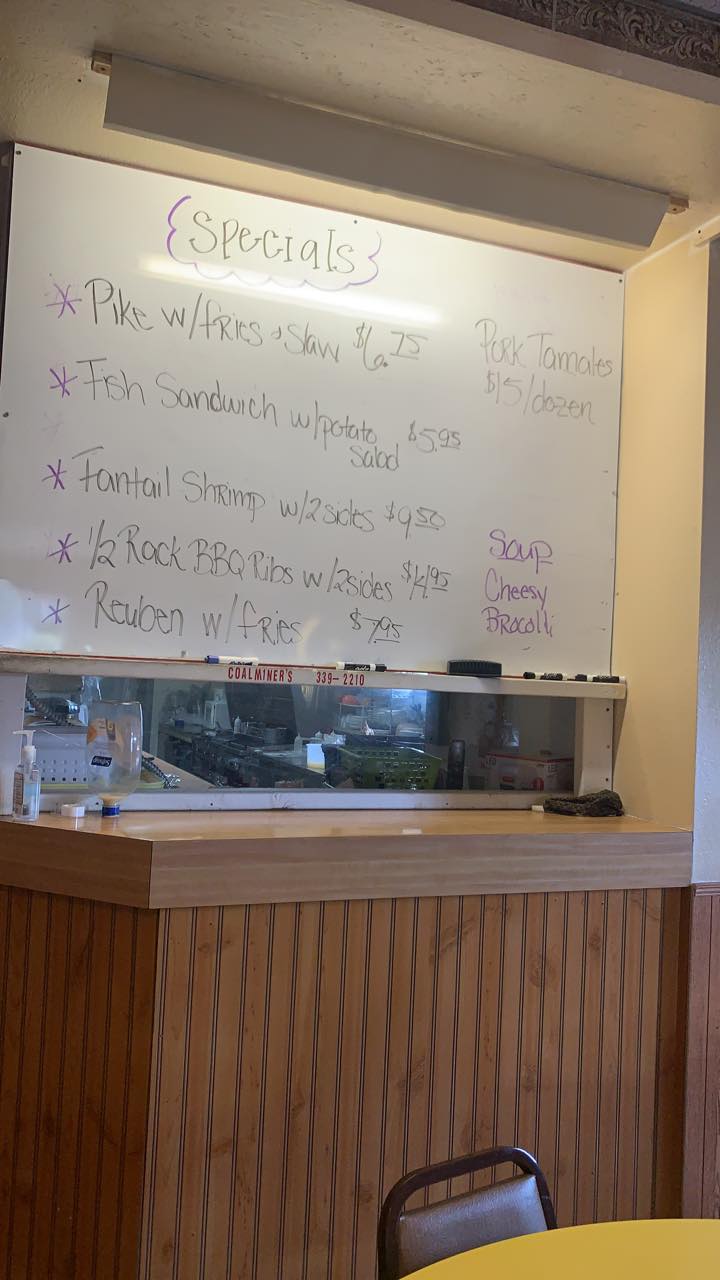 Specials
* Pike w/fries & Slaw $6.75
* Fish Sandwich w/potato Salad $5.95
* Fantail Shrimp w/2 sides $9.50
* 1/2 Rack BBQ Ribs w/2sides
* Reuben w/fries $7.95
Pork Tamales
$15/dozen
Soup
Cheesy
Brocolli
COALMINER'S 339-2210